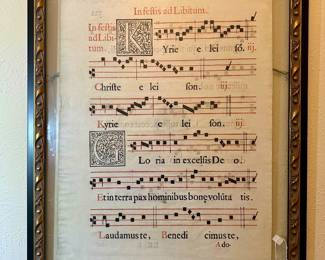 In festis ad Libitum.
In festis ad Libitum.
Kyrie lei só. iij.
Christe e lei son. iij.
Kyrie e lei son. iij.
GLoria in excelsis De o.
Et in terra pax hominibus bonę voluta tis.
Laudamus te, Benedi cimus te,
Ado-